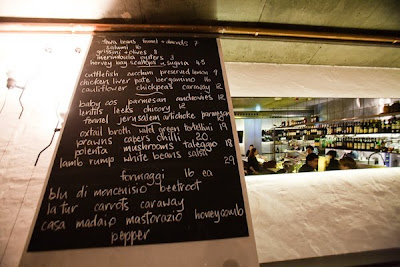 fava beans fennel + almonds 7
salumi 16
grissini + olives 8
merimbula oysters 3
hervey bay scallops n'sugna 4.5
cuttlefish zucchini preserved lemon 9
chicken liver pate bergamino 16
cauliflower chickpeas caraway 12
baby cos parmesan anchovies 12
lentils leeks chicory 12
fennel jerusalem artichoke parmesan 14
oxtail broth wild green tortellini 19
prawns capers chilli 20
polenta mushrooms taleggio 18
lamb rump white beans salsa 29
formaggi 16 ea
blu di moncenisio beetroot
la tur carrots caraway
casa madaio mastorazio honeycomb
pepper